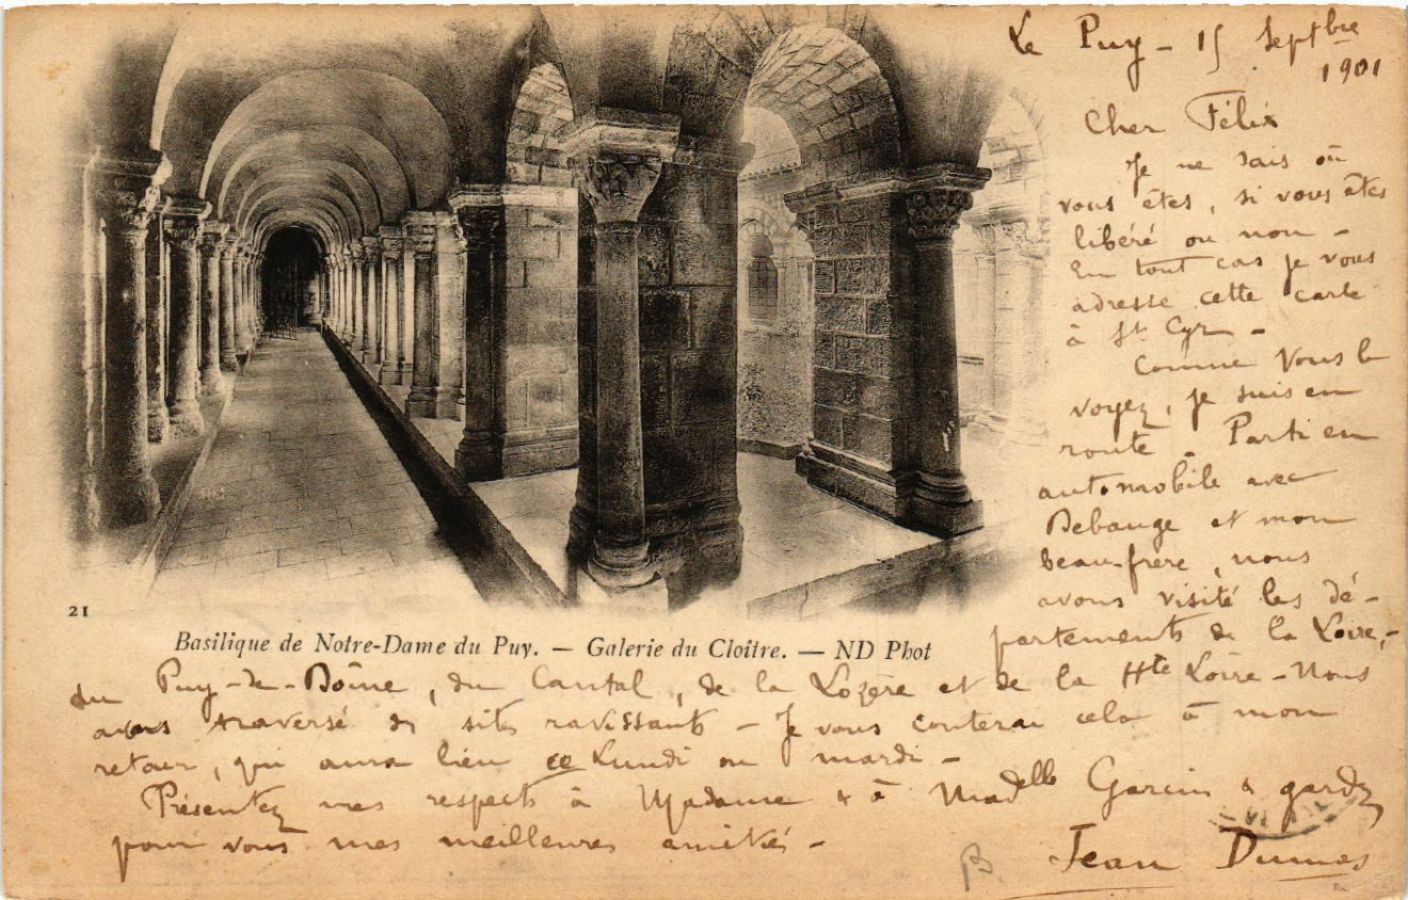 Le Puy - 15 Septbre
1901
Cher Félix
Je ne sais où
vous êtes, si vous êtes
libéré ou non -
En tout cas je vous
adresse cette carte
à St Cyr -
Comme vous le
voyez, je suis en
route. Parti en
automobile avec
Debange et mon
beau-frère, nous
avons visité les dé-
partements de la Loire,
21
Basilique de Notre-Dame du Puy. — Galerie du Cloître. — ND Phot
du Puy-de-Dôme, du Cantal, de la Lozère et de la Hte Loire - Nous
avons traversé des sites ravissants - Je vous conterai cela à mon
retour, qui aura lieu ce Lundi ou mardi -
Présentez mes respects à Madame & à Madelle Garcin & gardez
pour vous mes meilleures amitiés -
Jean Dumas